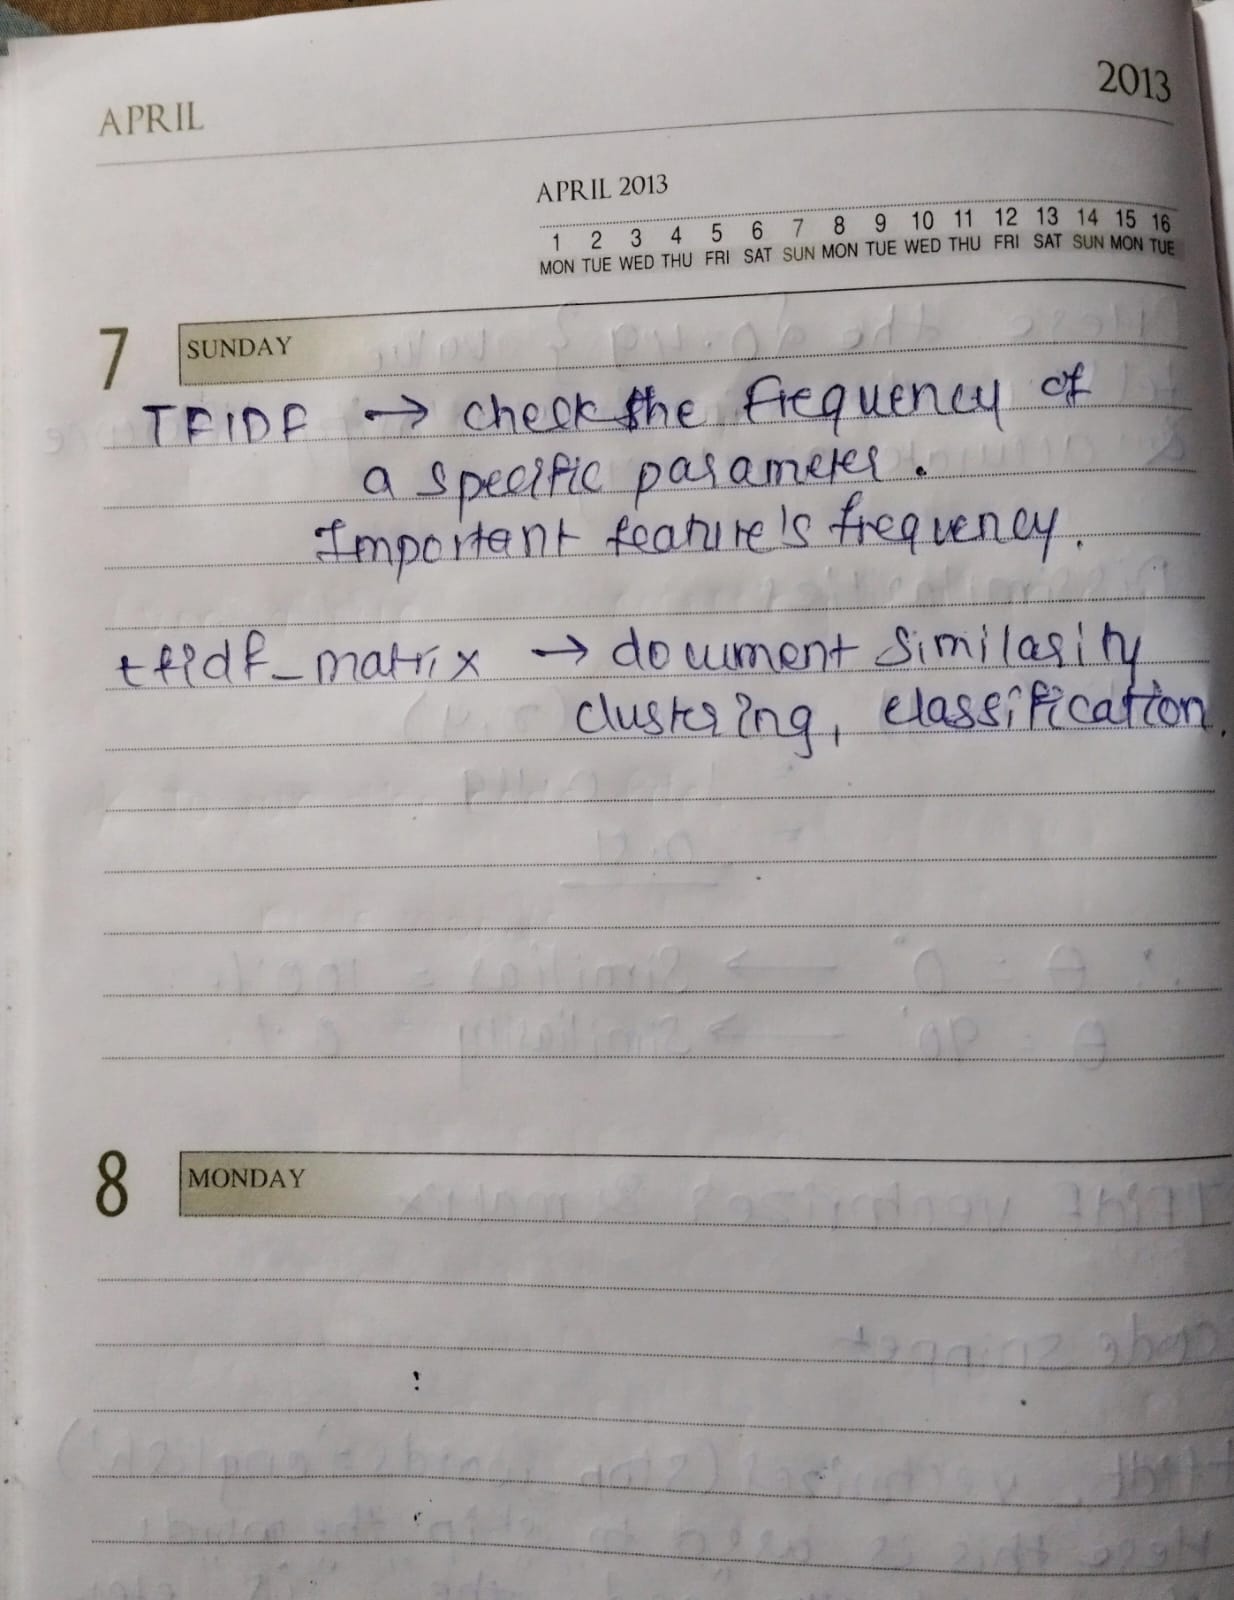 APRIL 2013
APRIL 2013
1 2 3 4 5 6 7 8 9 10 11 12 13 14 15 16
MON TUE WED THU FRI SAT SUN MON TUE WED THU FRI SAT SUN MON TUE
7 SUNDAY
TFIDF → check the frequency of
a specific parameter.
Important feature's frequency.
tfidf_matrix → document similarity
clustering, classification.
8 MONDAY